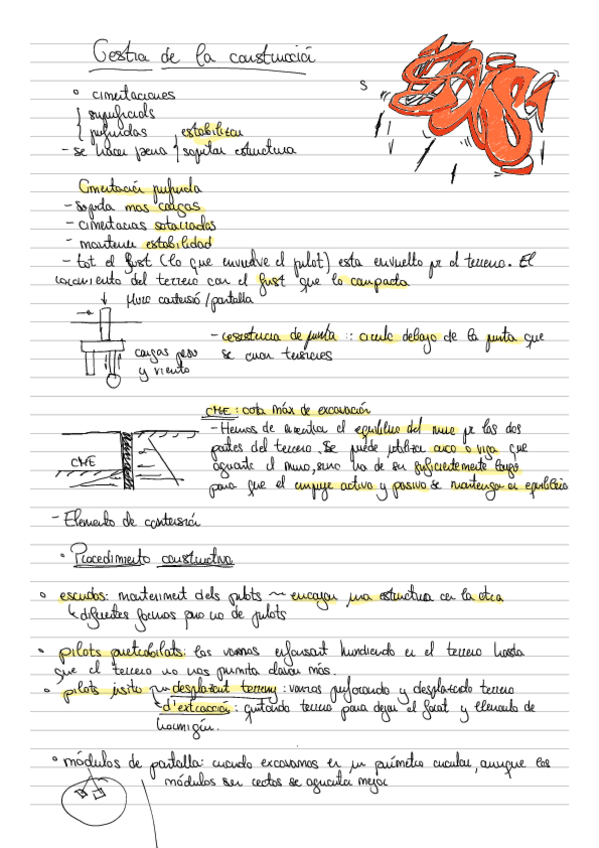 Gestión de la construcción
• cimentaciones
superficials
profundas
estabilizar
- se hacen para
soportar estructura
S
Cimentación profunda
- Soporta mas cargas
- cimentacions soterradas
- mantener estabilidad
- tot el fust (lo que envuelve el pilot) esta envuelto por el terreno. El
rozamiento del terreno con el fust que lo compacta
Muro contensió/pantalla
- resistencia de punta :: circulo debajo de la punta que
se crean tensiones
cargas peso
y viento
CME : cota máx de excavación
- Hemos de encontrar el equilibrio del muro por las dos
partes del terreno. Se puede utilizar arco o viga que
aguante el muro, sino ha de ser suficientemente largo
para que el empuje activo y pasivo se mantengan en equilibrio
CME
- Elemento de contensión
• Procedimiento constructivo
• escudos: manteniment dels pilots ~ encajar una estructura con la otra
↳ diferentes formas pero no de pilots
• pilots prefabricats: los vamos enfonsant hundiendo en el terreno hasta
que el terreno no nos permita clavar más.
• pilots insitu desplazant terreny : vamos perforando y desplazando terreno
↳ d'extracción : quitando terreno para dejar el forat y elemento de
hormigón.
• módulos de pantalla: cuando excavamos en un perímetro circular, aunque los
módulos sen rectos se aguanta mejor